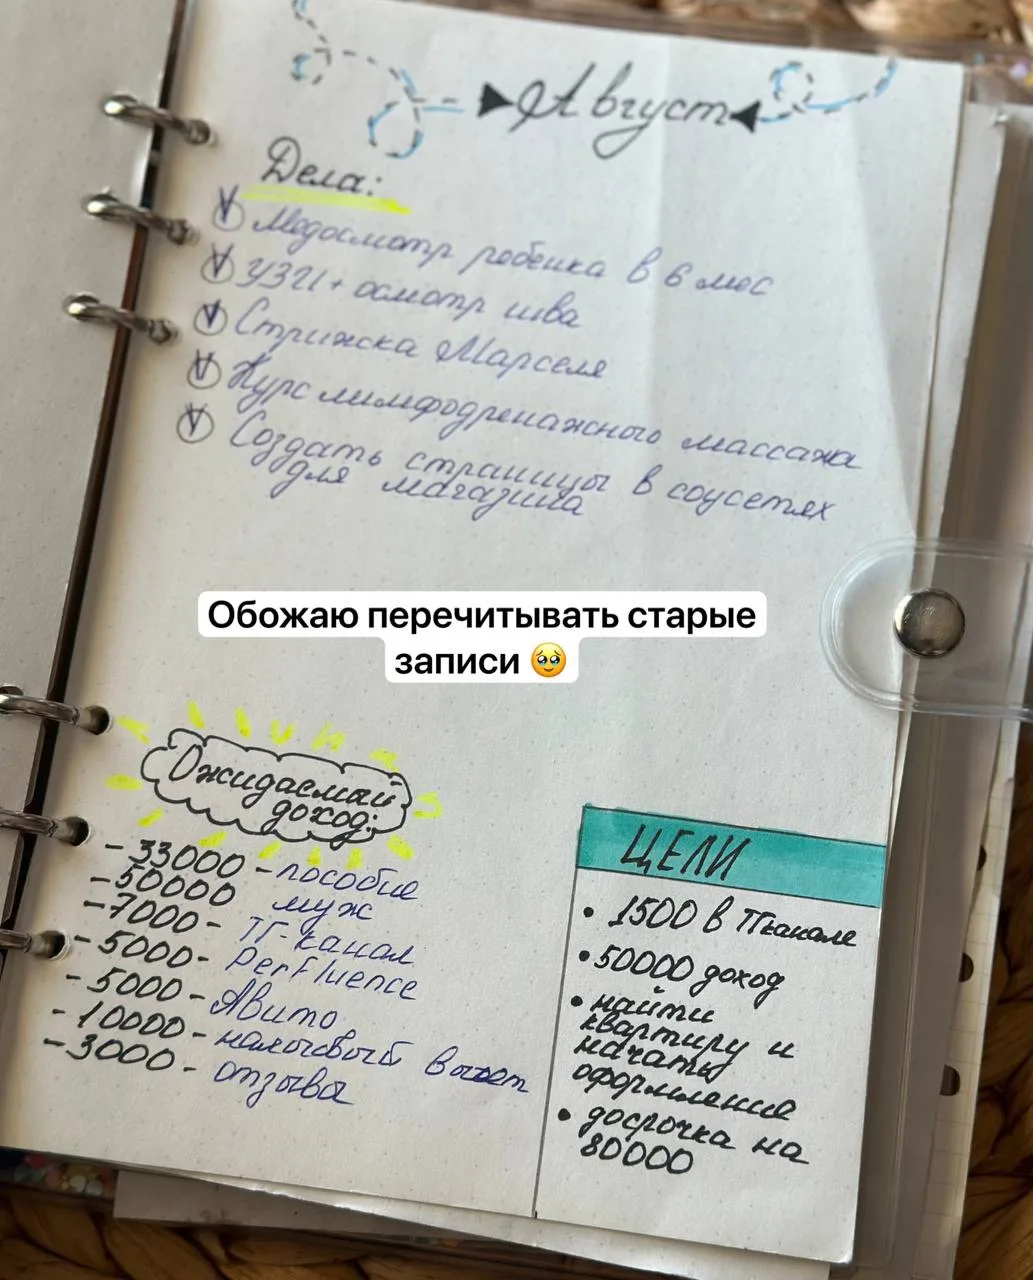 Август
Дела:
Медосмотр ребенка в 6 мес
УЗИ + осмотр шва
Стрижка Марселя
Курс лимфодренажного массажа
Создать страницы в соцсетях
для магазина
Обожаю перечитывать старые
записи 🥹
Ожидаемый
доход:
- 33000 - пособие
- 50000 муж
- 7000 - ТГ-канал
- 5000 - Perfluence
- 5000 - Авито
- 10000 - налоговый вычет
- 3000 - отзывы
ЦЕЛИ
• 1500 в ТГканале
• 50000 доход
• найти
квартиру и
начать
оформление
• досрочка на
80000